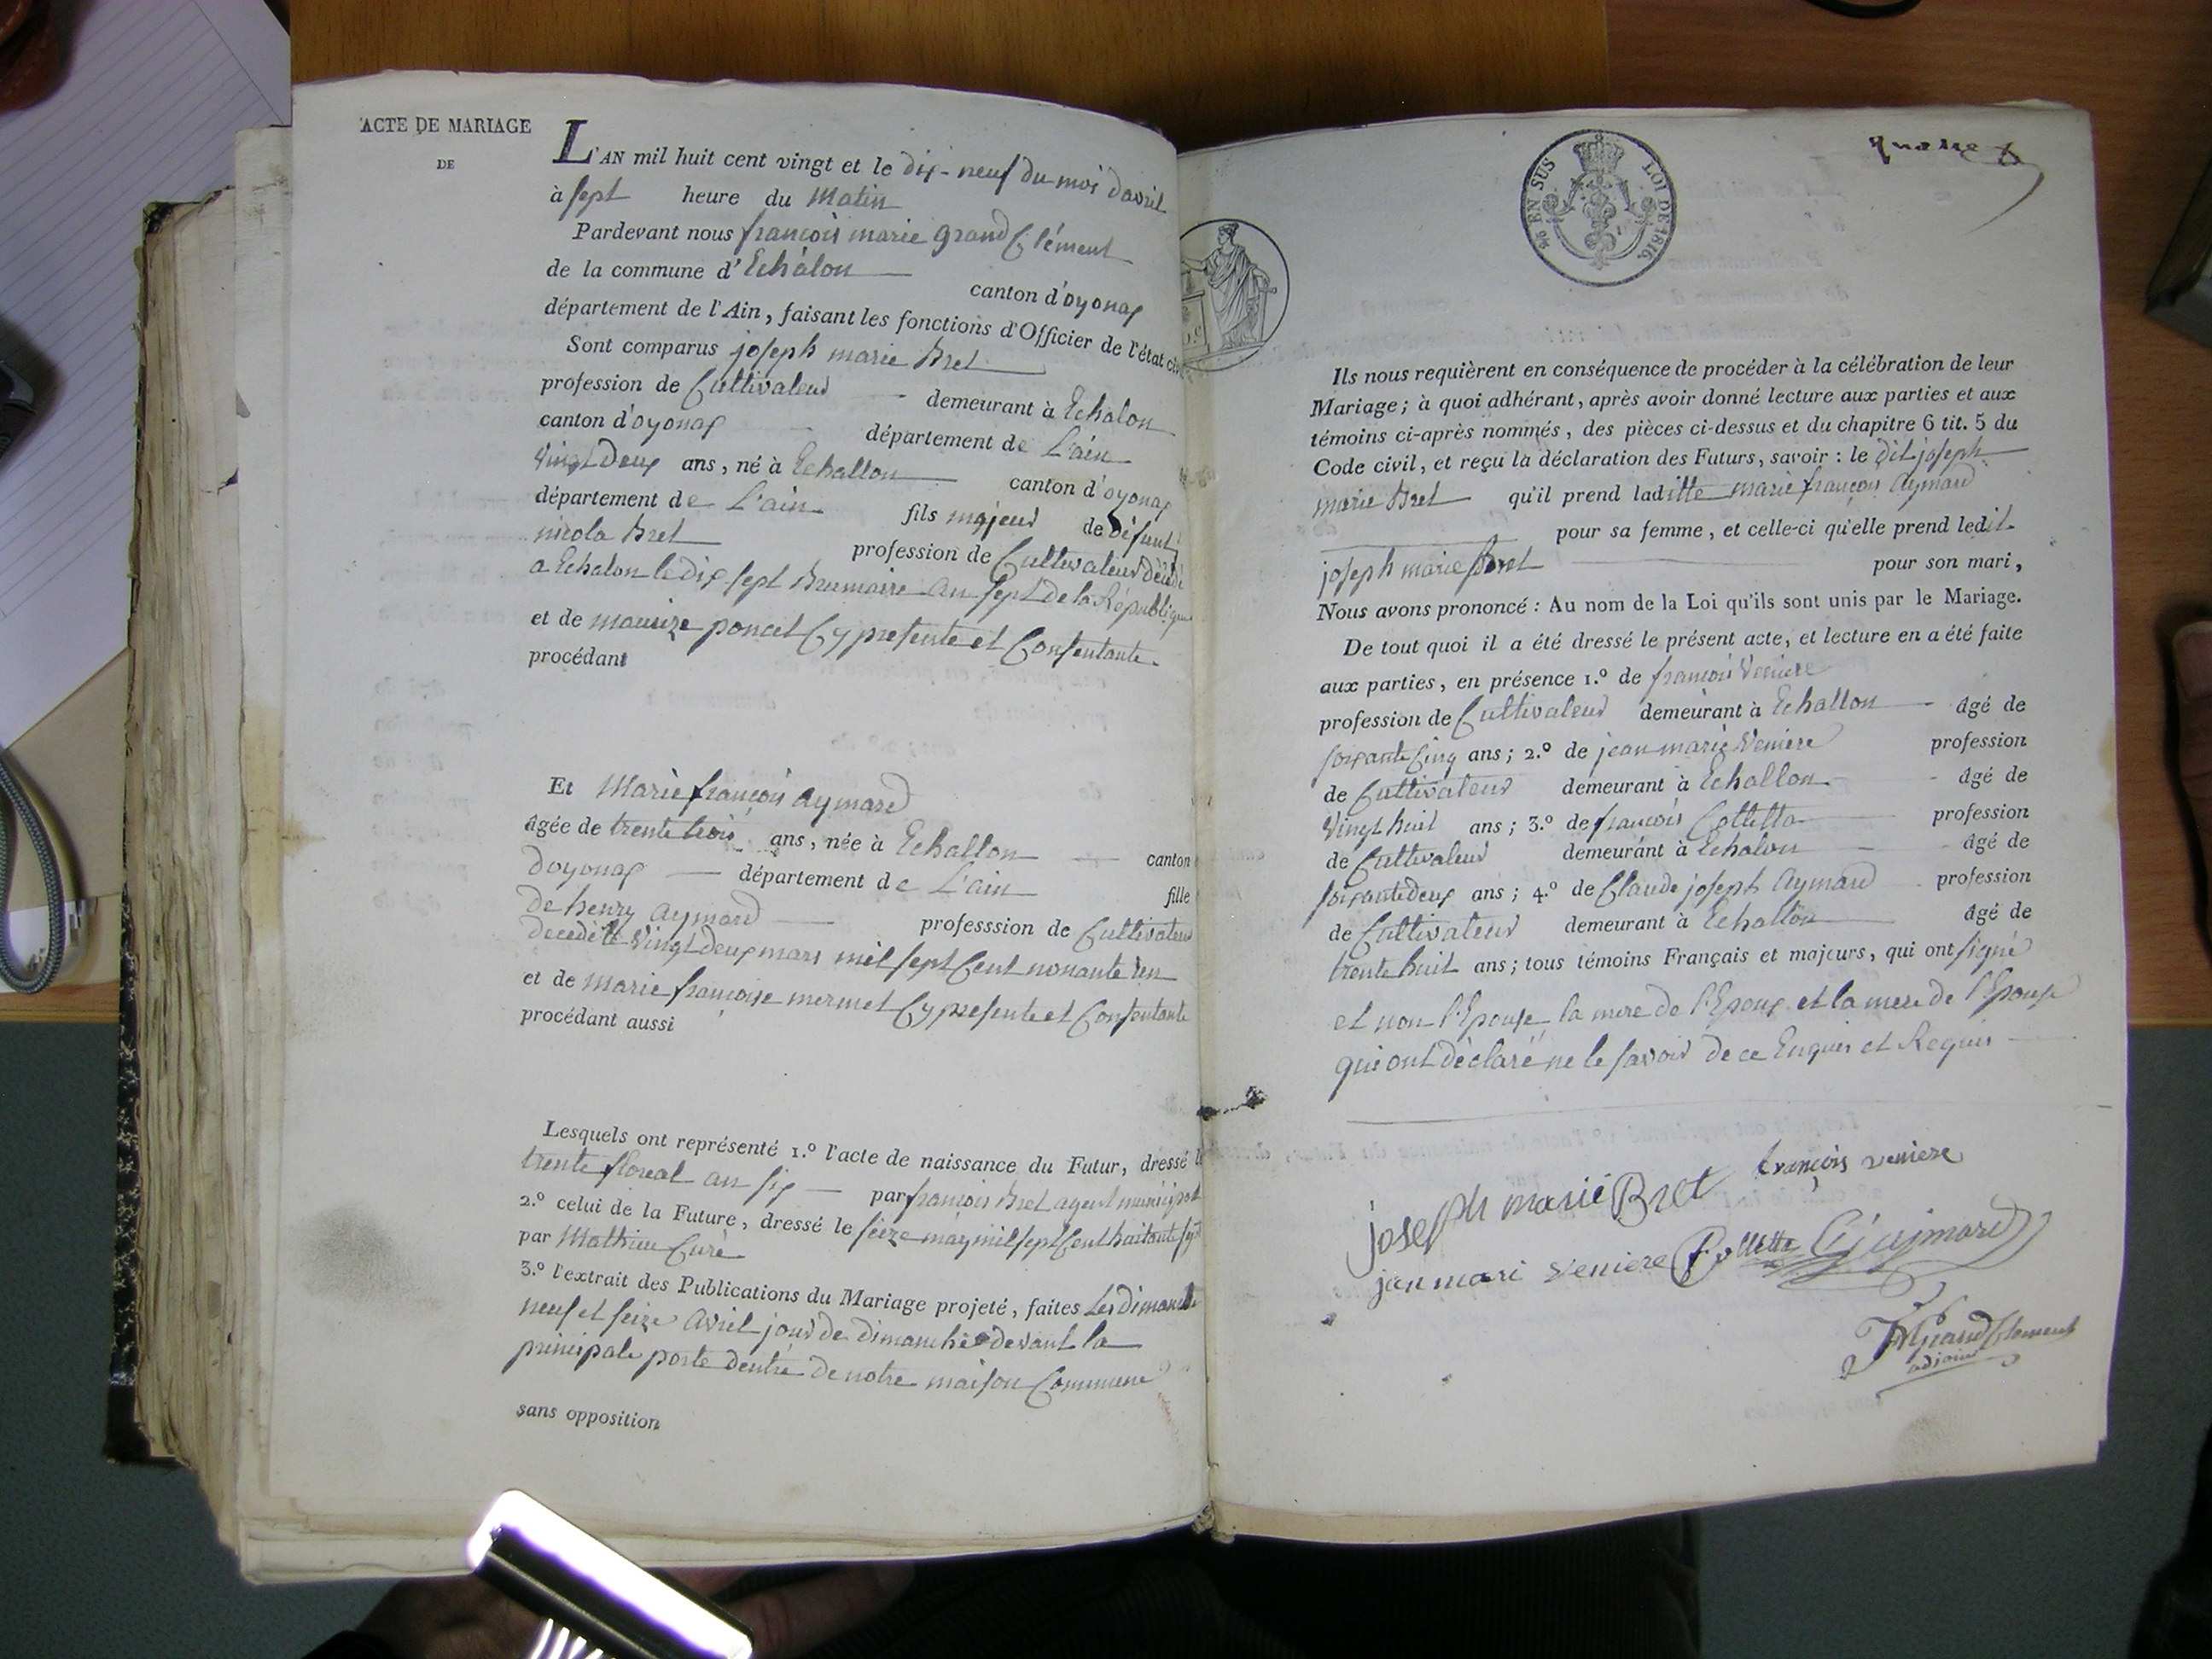 ACTE DE MARIAGE
DE
L'AN mil huit cent vingt et le dix-neuf du moi davril
à sept heure du Matin
Pardevant nous françois marie grand Clément
de la commune d'Echalon canton d'oyonax
département de l'Ain, faisant les fonctions d'Officier de l'état civ
Sont comparus joseph marie Bret
profession de Cultivateur demeurant à Echalon
canton d'oyonax département de L'ain
vingt Deux ans, né à Echallon canton d'oyonax
département de L'ain fils majeur de Défunt
nicola Bret profession de Cultivateur décédé
a Echalon le dix sept Brumaire an sept de la République
et de maurize poncet Cy presente et Consentante
procédant
Et Marie françois aymard
âgée de trente trois ans, née à Echallon canton
doyonax département de L'ain fille
de henry aymard professsion de Cultivateur
decedé le vingt deux mars mil sept Cent nonante un
et de marie françoise mermet Cy presente et Consentante
procédant aussi
Lesquels ont représenté 1.º l'acte de naissance du Futur, dressé l
trente floreal an six par françois Bret agent municipal
2.º celui de la Future, dressé le seize may mil sept Cent huitante sept
par Mathieu Curé
3.º l'extrait des Publications du Mariage projeté, faites Les dimanche
neuf et seize avril jour de dimanche devant la
principale porte dentré de notre maison Commune
sans opposition
EN SUS LOI DE 1816.
Ils nous requièrent en conséquence de procéder à la célébration de leur
Mariage; à quoi adhérant, après avoir donné lecture aux parties et aux
témoins ci-après nommés, des pièces ci-dessus et du chapitre 6 tit. 5 du
Code civil, et reçu la déclaration des Futurs, savoir: le dit joseph
marie Bret qu'il prend laditte marie françois aymard
pour sa femme, et celle-ci qu'elle prend ledit
joseph marie Bret pour son mari,
Nous avons prononcé: Au nom de la Loi qu'ils sont unis par le Mariage.
De tout quoi il a été dressé le présent acte, et lecture en a été faite
aux parties, en présence 1.º de françois veniere
profession de Cultivateur demeurant à Echallon âgé de
soixante Cinq ans; 2.º de jean marie veniere profession
de Cultivateur demeurant à Echallon âgé de
vingt huit ans; 3.º de françois Colletta profession
de Cultivateur demeurant à Echalon âgé de
soixante deux ans; 4.º de Claude joseph aymard profession
de Cultivateur demeurant à Echallon âgé de
trente huit ans; tous témoins Français et majeurs, qui ont signé
et non l'Epouse la mere de l'Epoux et la mere de l'Epouse
qui ont déclaré ne le savoir de ce Enquis et Requis
joseph marie Bret françois veniere
jan mari veniere Colletta Cj aymard
grand Clement
adjoint